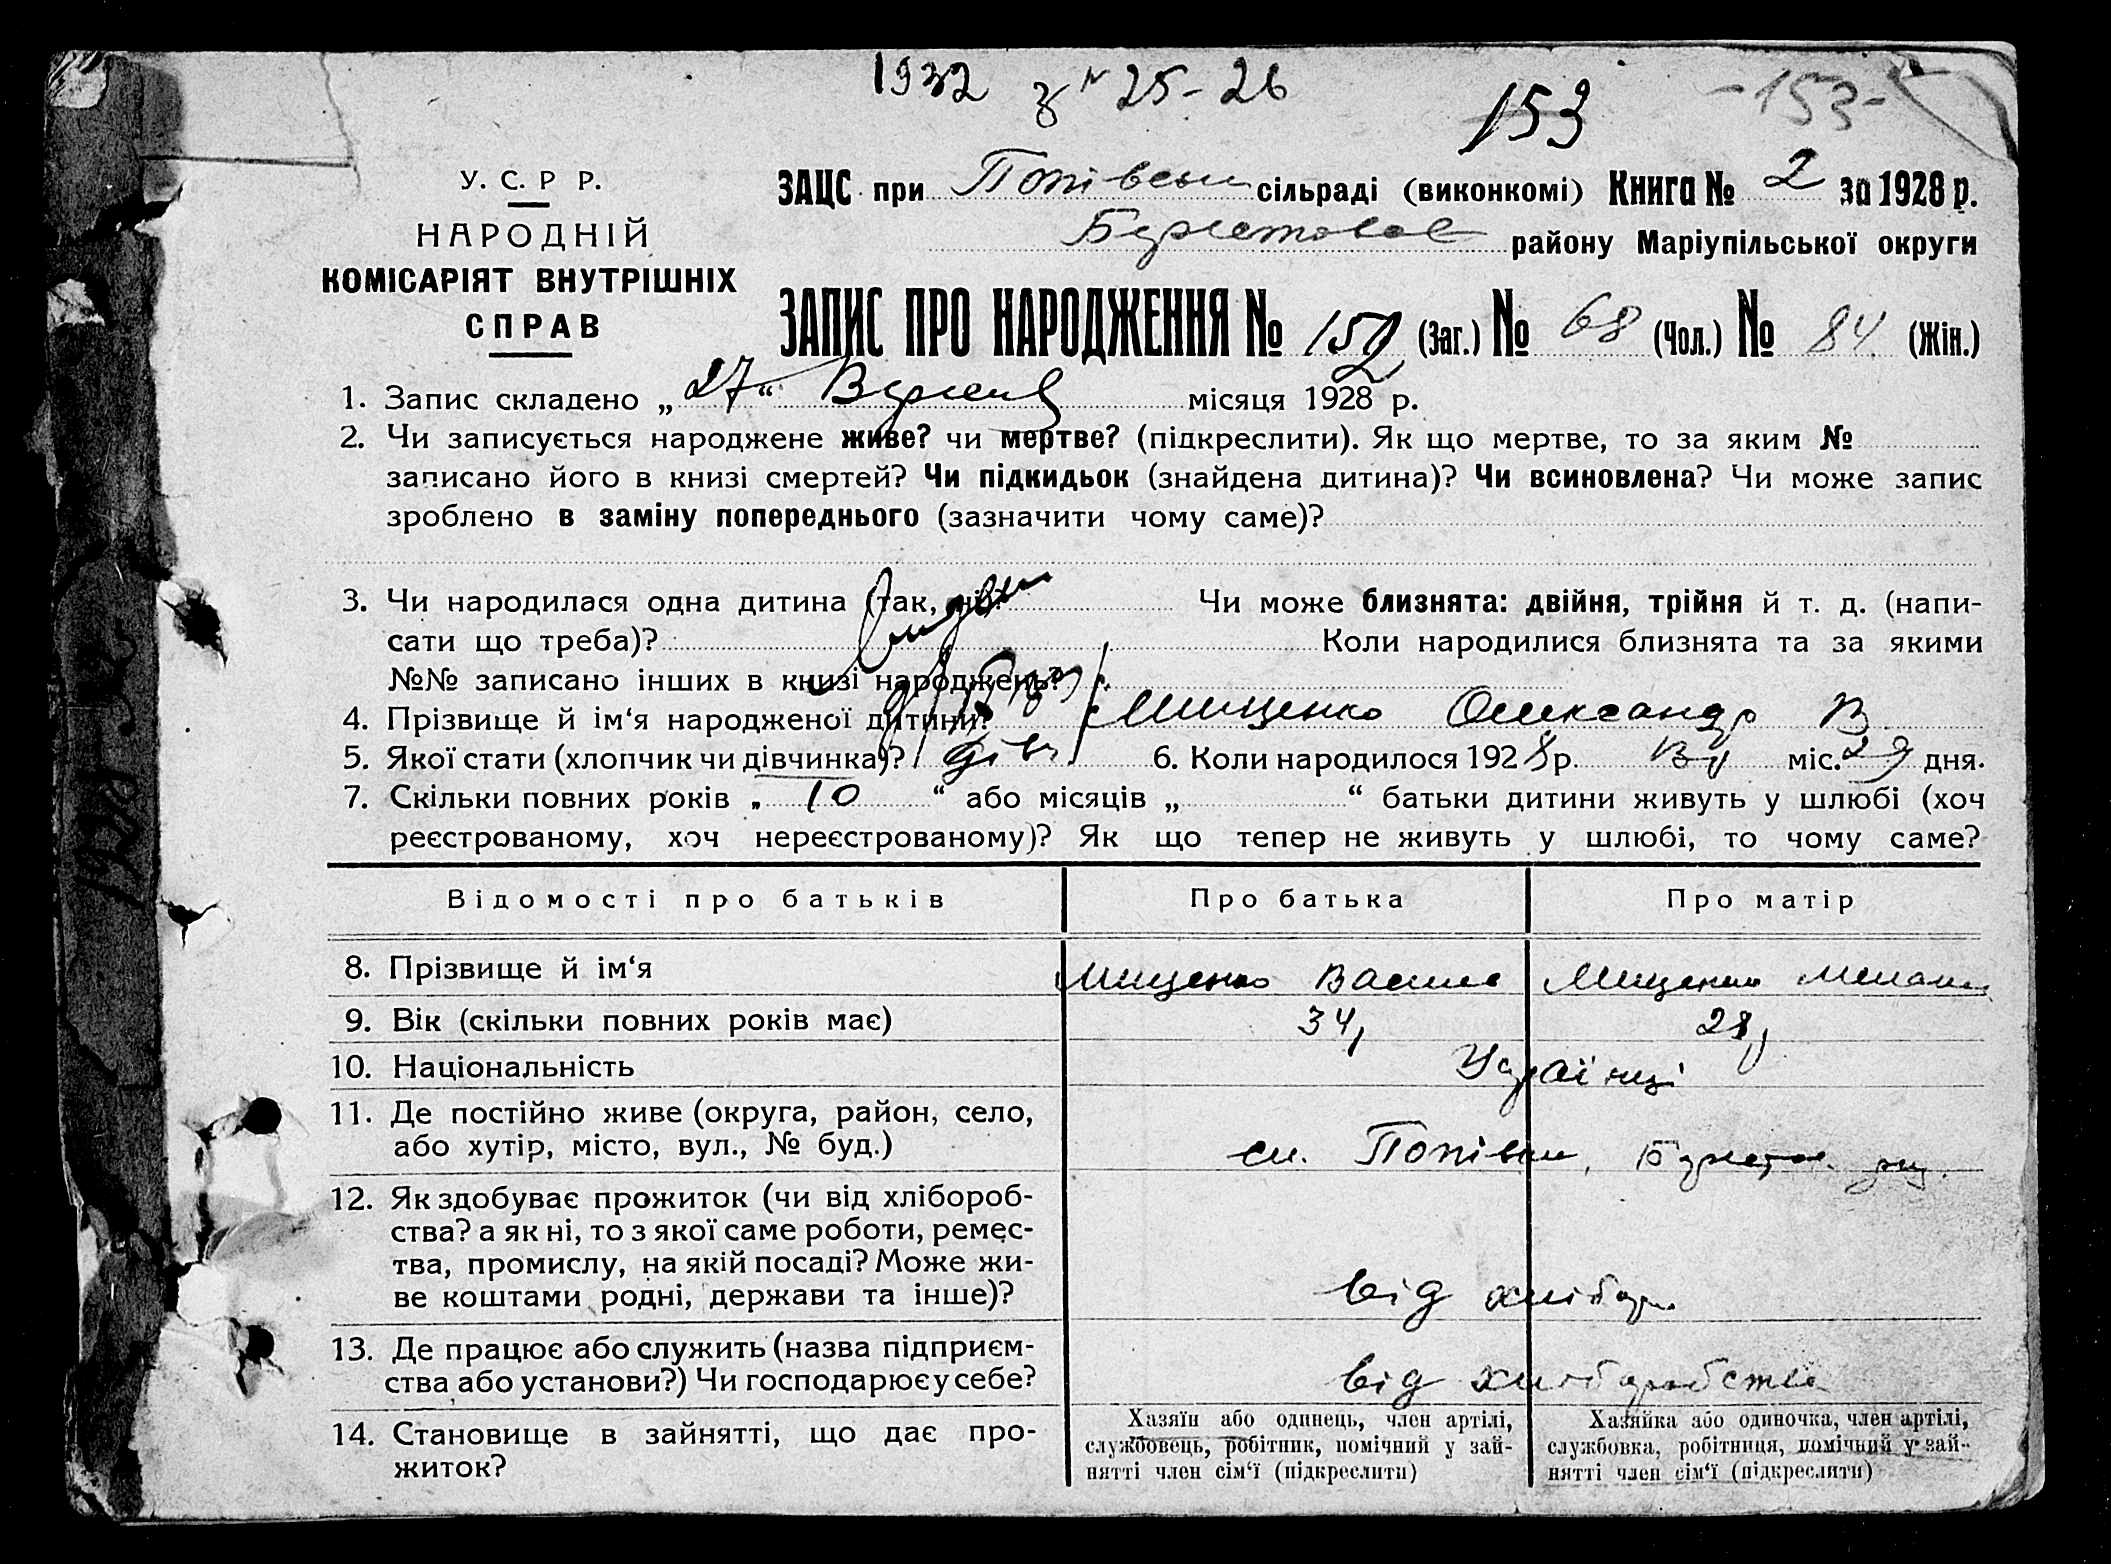 1932 з № 25-26
153 -153-
У. С. Р Р.
НАРОДНІЙ
КОМІСАРІЯТ ВНУТРІШНІХ
СПРАВ
ЗАЦС при сільраді (виконкомі) Книга № 2 за 1928 р.
району Маріупільської округи
ЗАПИС ПРО НАРОДЖЕННЯ № 152 (Заг.) № 68 (Чол.) № 84 (Жін.)
1. Запис складено „27“ місяця 1928 р.
2. Чи записується народжене живе? чи мертве? (підкреслити). Як що мертве, то за яким №
записано його в книзі смертей? Чи підкидьок (знайдена дитина)? Чи всиновлена? Чи може запис
зроблено в заміну попереднього (зазначити чому саме)?
3. Чи народилася одна дитина (так, ні)? Чи може близнята: двійня, трійня й т. д. (напи-
сати що треба)? Коли народилися близнята та за якими
№№ записано інших в книзі народжень?
4. Прізвище й ім‘я народженої дитини? Мищенко Олександр В
5. Якої стати (хлопчик чи дівчинка)? дівч 6. Коли народилося 1928 р. міс. 29 дня.
7. Скільки повних років „ 10 “ або місяців „ “ батьки дитини живуть у шлюбі (хоч
реєстрованому, хоч нереєстрованому)? Як що тепер не живуть у шлюбі, то чому саме?
Відомості про батьків Про батька Про матір
8. Прізвище й ім‘я Мищенко Василь Мищенко
9. Вік (скільки повних років має) 34 28
10. Національність Українці
11. Де постійно живе (округа, район, село,
або хутір, місто, вул., № буд.) с. Попівка,
12. Як здобуває прожиток (чи від хлібороб-
ства? а як ні, то з якої саме роботи, ремес-
тва, промислу, на якій посаді? Може жи-
ве коштами родні, держави та інше)? від хлібор.
13. Де працює або служить (назва підприєм-
ства або установи?) Чи господарює у себе? від хліборобства
14. Становище в зайнятті, що дає про-
житок?
Хазяїн або одинець, член артілі,
службовець, робітник, помічний у зай-
нятті член сім‘ї (підкреслити)
Хазяйка або одиночка, член артілі,
службовка, робітниця, помічний у зай-
нятті член сім‘ї (підкреслити)